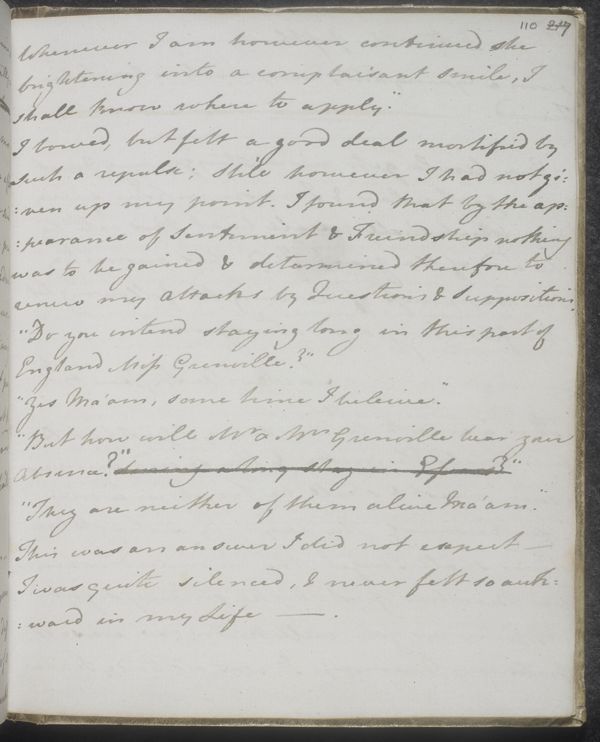 110 217
Whenever I am however continued she
brightening into a complaisant smile, I
shall know where to apply."
I bowed, but felt a good deal mortified by
such a repulse; still however I had not gi:
:ven up my point. I found that by the ap:
:pearance of Sentiment & Freindship nothing
was to be gained & determined therefore to
renew my Attacks by Questions & Suppositions.
"Do you intend staying long in this part of
England Miss Grenville?"
"Yes Ma'am, some time I beleive."
"But how will Mr & Mrs Grenville bear your
Absence?"
"They are neither of them alive Ma'am."
This was an answer I did not expect—
I was quite silenced, & never felt so awk:
:ward in my Life — .